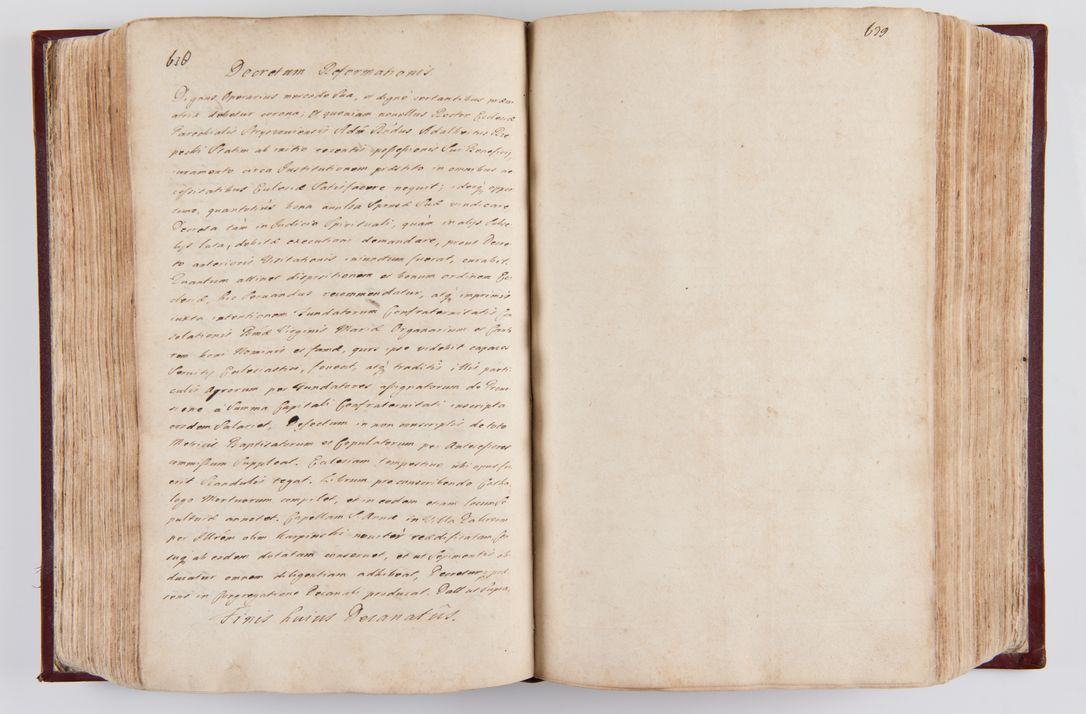 618
Decretum Reformationis.
Dignus Operarius mercede sua, et dignè certantibus
debetur corona, Et quoniam novellus Rector Ecclesiæ
Parochialis Adm Rndus Adalbertus
statim ab initio recentis possessionis sui Beneficij,
iuramento circa Institutionem præstito in omnibus ne
cessitatibus Ecclesiæ satisfacere nequit; ideoq
quantotiùs bona avulsa Sponsæ suæ vindicare
Decreta tàm in Judicio Spirituali, quàm in alijs
lata, debitæ executioni demandare, prout Decre
to anterioris Visitationis iniunctum fuerat, curabit.
Quantum attinet dispositionem et bonum ordinem Ec
clesiæ, hic servandus recommendatur, atq imprimis
iuxta intentionem Fundatorum Confraternitatis Con
solationis Bmæ Virginis Mariæ Organarium et Canto
rem boni Nominis et famæ, quos ipse videbit capaces
Servitij Ecclesiastici, foveat, atq traditis illis parti
culis Agrorum per Fundatores assignatorum de Provi
sione à Summa Capitali Confraternitati inscripta
eosdem Salariet, Defectum in non conscriptis de toto
Metricis Baptisatorum et Copulatorum per Antecessores
commissum suppleat. Ecclesiam tempestive ubi opus fu
erit Scandulis tegat. Librum pro conscribendo Catha
logo Mortuorum compilet, et in eodem etiam locum Se
pulturæ annotet. Capellam S. Annæ in Villa
per Illrem olim Karpinski noviter reædificatam
ab eodem dotatam conservet, et ut Sepimentis
ducatur omnem diligentiam adhibeat, Decretum
sens in Congregatione Decanali producat. Datt ut supra.
Finis huius Decanatûs.
619